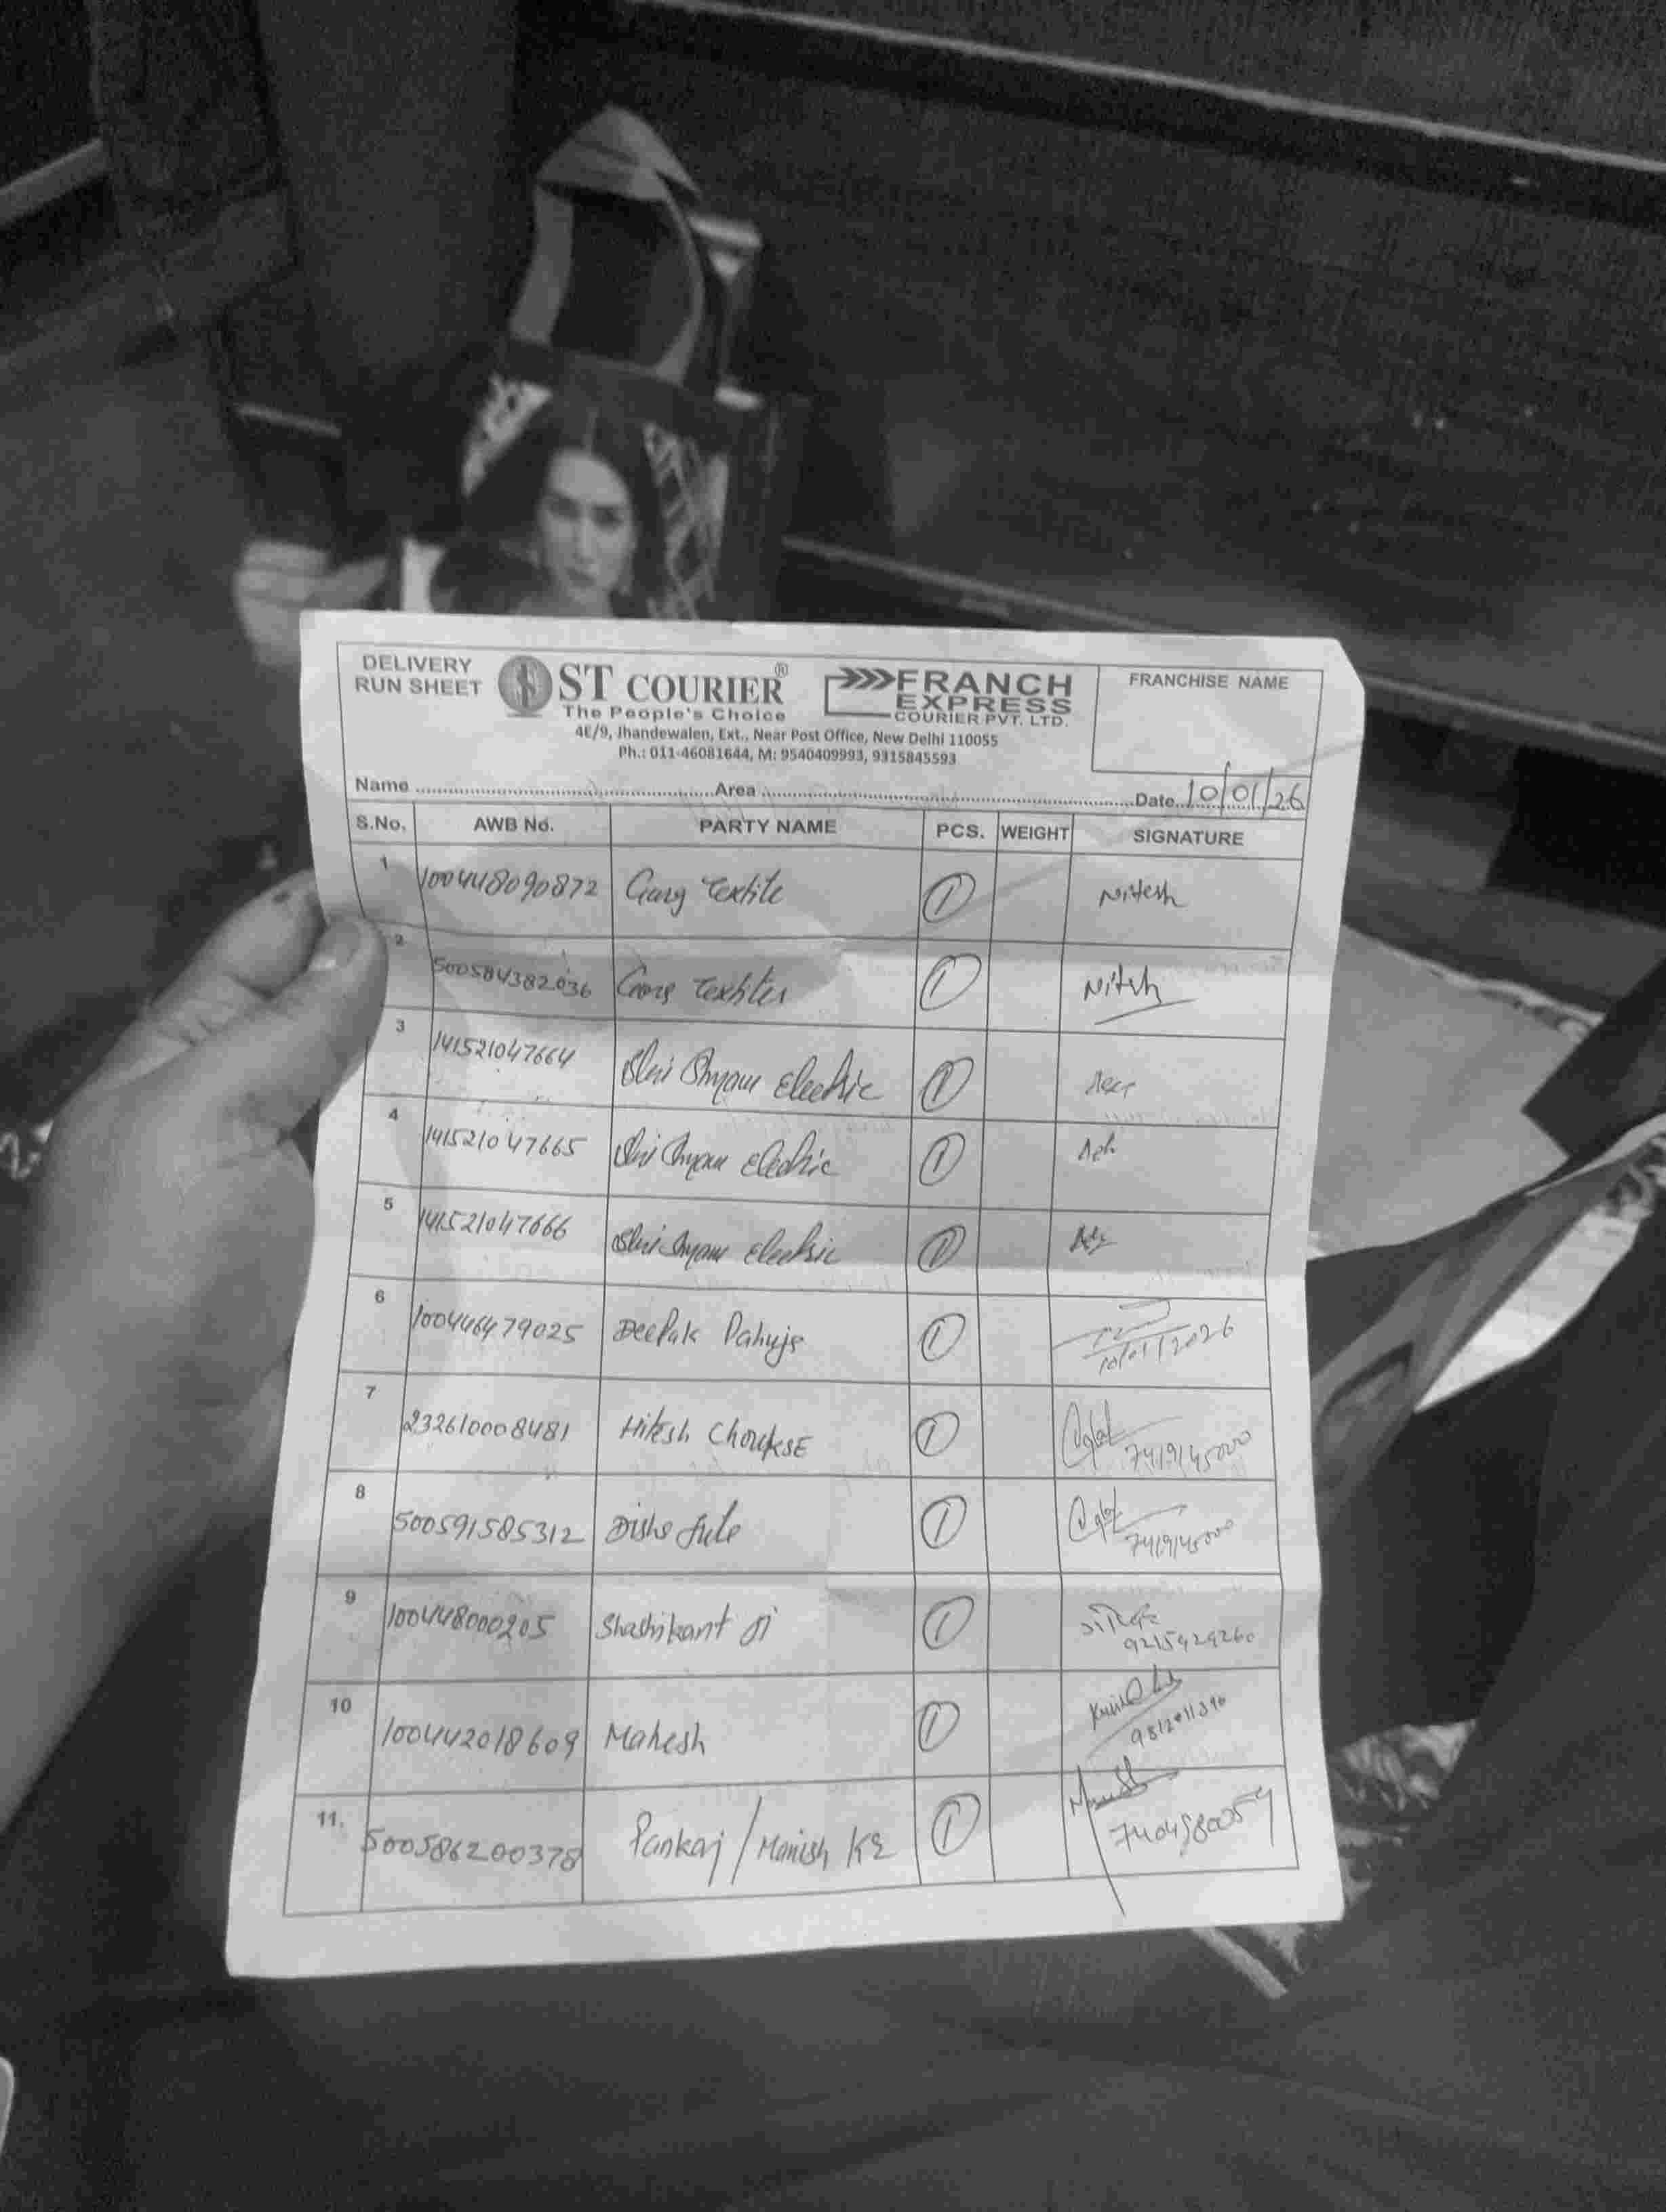 DELIVERY
RUN SHEET
ST COURIER®
The People's Choice
FRANCH
EXPRESS
COURIER PVT. LTD.
FRANCHISE NAME
4E/9, Jhandewalen, Ext., Near Post Office, New Delhi 110055
Ph.: 011-46081644, M: 9540409993, 9315845593
Name Area Date 10/01/26
S.No. AWB No. PARTY NAME PCS. WEIGHT SIGNATURE
1 100448090872 Garg Textile 1 Nitesh
2 500584382036 Garg Textiles 1 Nitsh
3 141521047664 Shri Shyam Electric 1
4 141521047665 Shri Shyam Electric 1
5 141521047666 Shri Shyam Electric 1
6 100446479025 Deepak Pahuja 1 10/01/2026
7 2326100008481 Hitesh ChoukSE 1 7419145000
8 500591585312 Disha Jute 1 7419145000
9 100448000205 Shashikant Ji 1 9215929260
10 100442018609 Mahesh 1
11. 500586200378 Pankaj / Manish Kr 1 7404980054